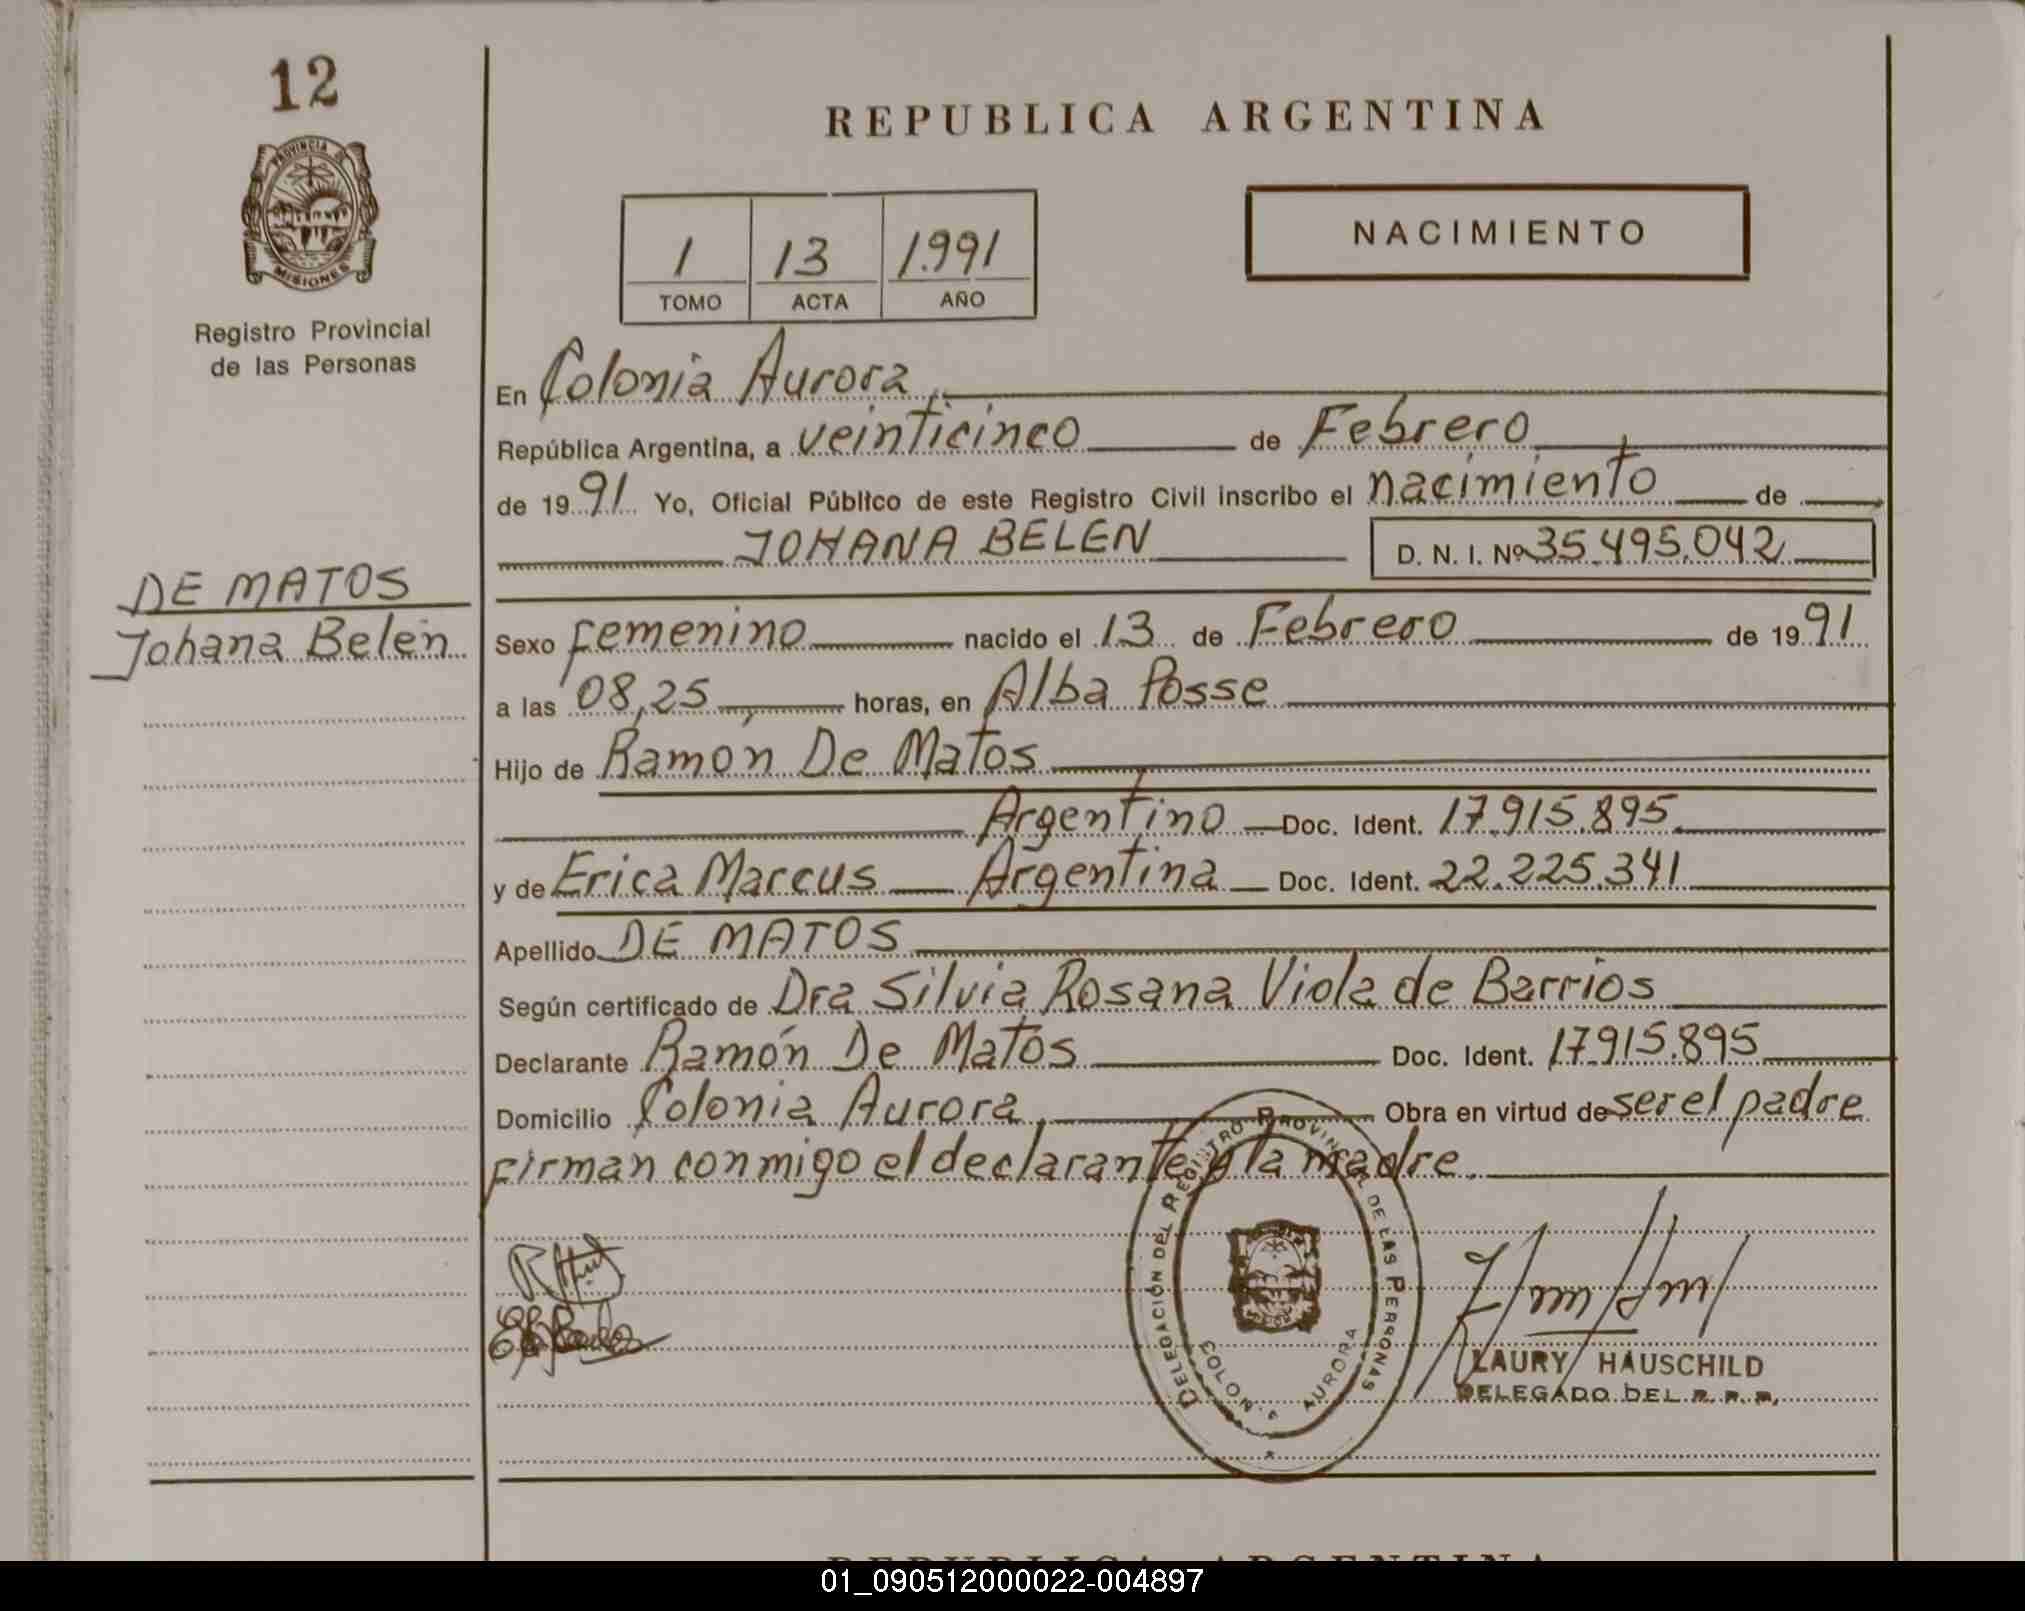 12
PROVINCIA DE
MISIONES
Registro Provincial
de las Personas
DE MATOS
Johana Belén
REPUBLICA ARGENTINA
1 13 1.991
TOMO ACTA AÑO
NACIMIENTO
En Colonia Aurora,
República Argentina, a veinticinco de Febrero
de 1991 Yo, Oficial Público de este Registro Civil inscribo el nacimiento de
JOHANA BELEN D. N. I. Nº 35.495.042
Sexo femenino nacido el 13 de Febrero de 1991
a las 08,25 horas, en Alba Posse
Hijo de Ramón De Matos
Argentino Doc. Ident. 17.915.895
y de Erica Marcus Argentina Doc. Ident. 22.225.341
Apellido DE MATOS
Según certificado de Dra Silvia Rosana Viola de Barrios
Declarante Ramón De Matos Doc. Ident. 17.915.895
Domicilio Colonia Aurora Obra en virtud de ser el padre
firman conmigo el declarante y la madre.
DELEGACIÓN DEL REGISTRO PROVINCIAL DE LAS PERSONAS
COLONIA AURORA
LAURY HAUSCHILD
DELEGADO DEL R. P. P.
REPUBLICA ARGENTINA
01_090512000022-004897